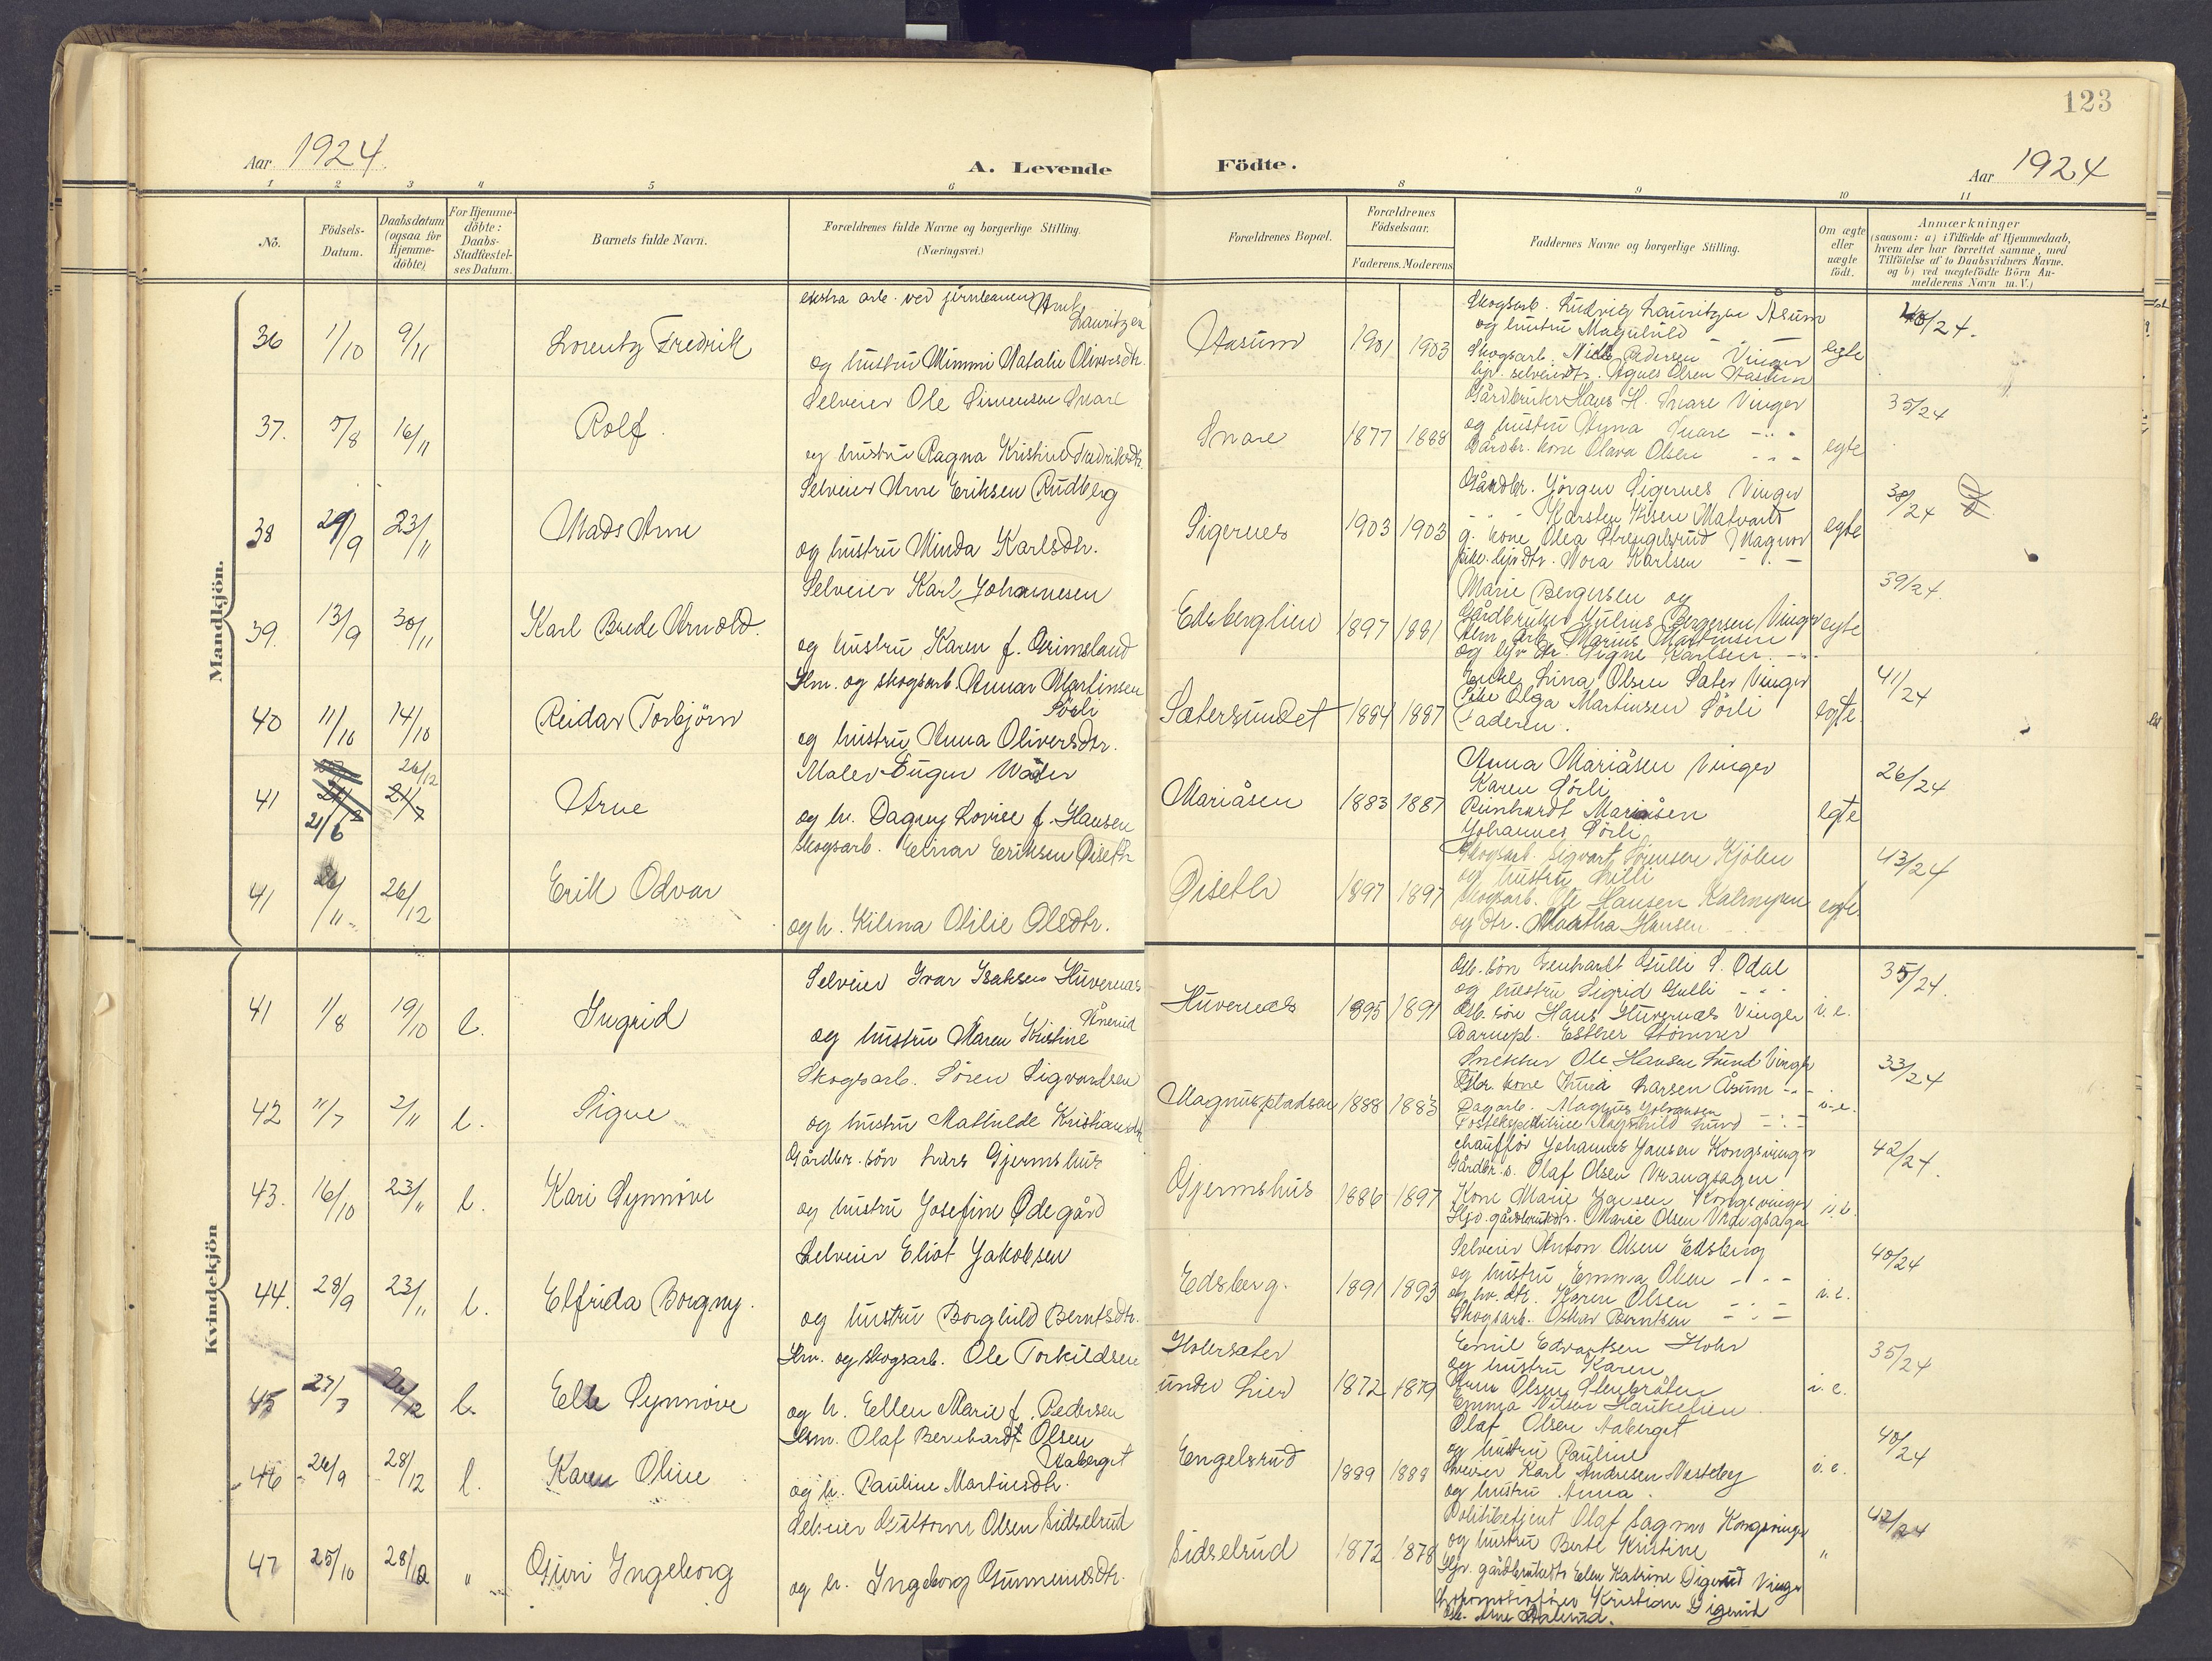 123
Aar 1924
A. Levende
Födte.
Aar 1924
1 2 3 4 5 6 8 9 10 11
No.
Födsels-Datum.
Daabsdatum (ogsaa for Hjemme-döbte)
For Hjemme-döbte: Daabs-Stadfæstel-ses Datum.
Barnets fulde Navn.
Forældrenes fulde Navne og borgerlige Stilling.
(Næringsvei.)
Forældrenes Bopæl.
Forældrenes Födselsaar.
Faderens. Moderens
Faddernes Navne og borgerlige Stilling.
Om ægte eller uægte födt.
Anmærkninger
(saasom: a) i Tilfælde af Hjemmedaab,
hvem der har forrettet samme, med
Tilföielse af to Daabsvidners Navne.
og b) ved uægtefödte Börn An-
melderens Navn m.V.)
Mandkjön.
36 1/10 9/11 Lorentz Fredrik
ekstra arb. ved jernbanen
Lauritzen
og hustru Mimmi Natalie Oliversdtr.
Aasum 1901 1903
Skogsarb. Ludvig Lauritzen Åsum
og hustru Magnhild
Skogsarb. Nils Pedersen Vinger
hjv. selveierdtr. Agnes Olsen Aasum
egte
37. 5/8 16/11 Rolf.
Selveier Ole Simensen Snare
og hustru Ragna Kristine Fredriksdtr.
Snare 1877 1888
Gårdbruker Hans H. Snare Vinger
og hustru Anna Snare
Gårdbr. kone Olava Olsen
egte
35/24
38 29/9 23/11 Mads Arne
Selveier Arne Eriksen Rudberg
og hustru Minda Karlsdtr.
Sigernes 1903 1903
Gårdbr. Jörgen Sigernes Vinger
Karsten
g. kone Olea Strengelsrud Magnor
pike hjv. dtr. Nora Karlsen
egte
38/24
39. 13/9 30/11 Karl Brede Arnold.
Selveier Karl Johannesen
og hustru Karen f. Grimsland
Edsberglien 1897 1881
Marie Bergersen og
Gårdbruker Julius Bergersen Vinger
Marius Martinsen
og hjv. dtr. Signe Karlsen
egte
39/24.
40 11/10 14/10 Reidar Torbjörn
Hm. og skogsarb. Annar Martinsen
Sörli
og hustru Anna Oliversdtr.
Sætersundet 1884 1887
Enke Lina Olsen Sæter Vinger
Pike Olga Martinsen Sörli
Faderen.
egte.
41/24
41 21/6 26/12 Arne
Maler Eugen
og h. Dagny Lovise f. Hansen
Mariåsen 1883 1887
Anna Mariåsen Vinger
Karen Sörli
Reinhardt Mariåsen
Johannes Sörli
egte
26/24
41 26/11 26/12 Erik Odvar
Skogsarb. Einar Eriksen Øiseth
og h. Kilma Otilie Olsdtr.
Øiseth 1897 1897
Skogsarb. Sigvart Sörensen Kjölen
og hustru Milli
Skogsarb. Ole Hansen Kalmyren
og dtr. Martha Hansen
egte.
43/24
Kvindekjön
41 1/8 19/10 l. Ingrid
Selveier Ivar Isaksen Huvernæs
og hustru Maren Kristine
Huvernæs 1895 1891
Gb. sön Genhardt Gulli S. Odal
og hustru Sigrid Gulli
Gb. sön Hans Huvernæs Vinger
Barnepl. Esther Stömner
i. e.
35/24.
42 11/7 2/11 l. Signe
Skogsarb. Sören Sigvardsen
og hustru Mathilde Kristiansdtr
Magnuspladsen 1888 1883
Snekker Ole Hansen Lund Vinger
Gbr. kone Anna Larsen Åsum
Dagarb. Magnus Johansen
Postekspeditrice Magnhild Lund
i. e.
33/24
43. 16/10 23/11 l. Kari Synnöve
Gårdbr. sön Lars Gjermshus
og hustru Josefine Ødegård
Gjermshus 1886 1897
chaufför Johannes Jansen Kongsvinger
Gårdbr. s. Olaf Olsen Vrangsagen
Kone Marie Jansen Kongsvinger
Hjv. gårdbrukdtr. Marie Olsen Vrangsagen
i. e.
42/24.
44. 28/9 23/11 l. Elfrida Borgny.
Selveier Eliot Jakobsen
og hustru Borghild Berntsdtr.
Edsberg. 1891 1893
Selveier Anton Olsen Edsberg
og hustru Emma Olsen
og hv. dtr. Karen Olsen
Skogsarb. Oskar Berntsen
i. e.
40/24
45 27/7 26/12 l. Else Synnöve
Hm. og skogsarb. Ole Torkildsen
og h. Ellen Marie f. Pedersen
Holersæter
under Lier 1872 1879
Emil Edvartsen Holer
og hustru Karen
Olsen Stenbråten
Emma Nilsen Haukelien
i. e.
35/24
46 26/9 28/12 l. Karen Oline
Hm. Olaf Bernhardt Olsen
Aaberget
og h. Pauline Martinsdtr.
Engelsrud 1889 1888
Olaf Olsen Aaberget
og hustru Pauline
Karl Andresen Næsteby
og hustru Anna.
i. e.
40/24
47 25/10 28/12 " Guri Ingeborg
Selveier Guttorm Olsen Sidselrud
og h. Ingeborg Gunnerusdtr.
Sidselrud 1872 1878
Politibetjent Olaf Sagmo Kongsvinger
og hustru Berte Kristine
Hjv. gårdbrukdtr Elen Katrine Digerud Vinger
Lokomotivförer Kristian Digerud
"
42/24